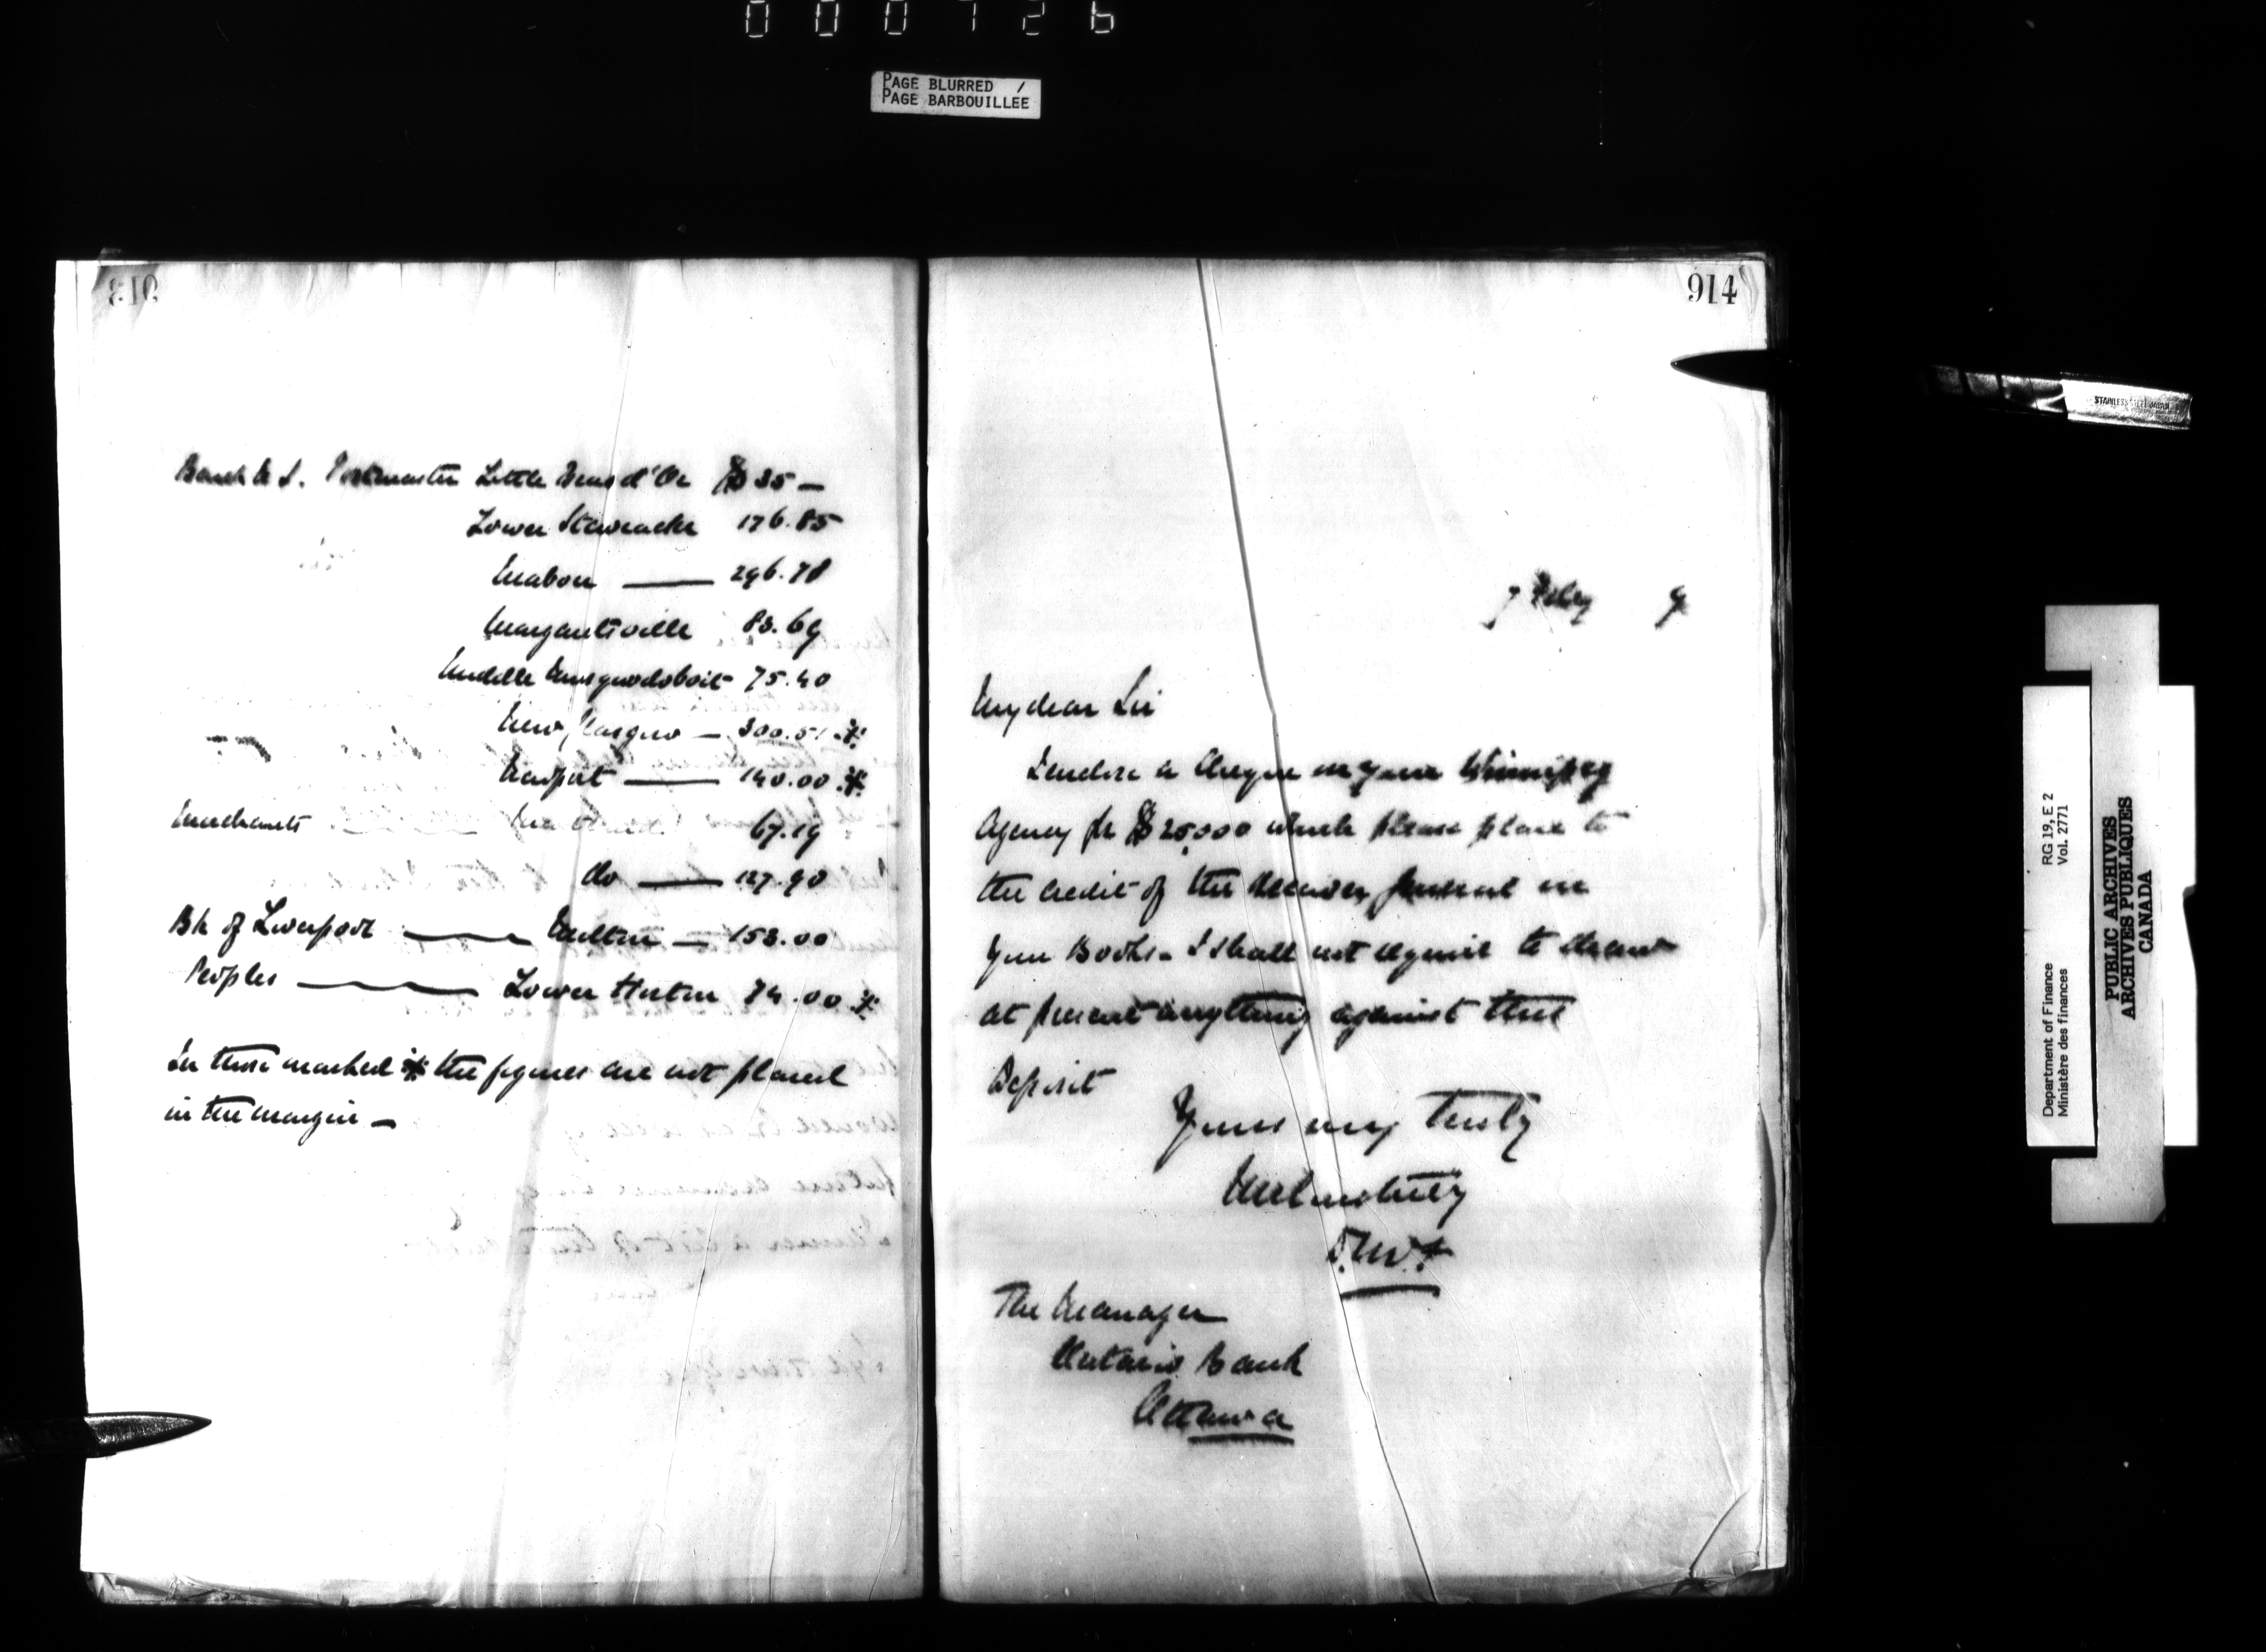 000726
PAGE BLURRED /
PAGE BARBOUILLEE
913
Bank N S. Postmaster Little Bras d'Or $35 —
Lower Stewiacke 176.85
Mabou — 296.78
Margaretsville 83.69
Middle Musquodoboit 75.40
New Glasgow — 300.51 ※
Newport — 140.00 ※
Merchants 67.19
do — 127.90
Bk of Liverpool — Milton — 153.00
Peoples — Lower Horton 74.00 ※
In those marked ※ the figures are not placed
in the margin —
914
7 Feby 9
My dear Sir
I enclose a cheque on your Winnipeg
Agency for $25,000 which please place to
the credit of the Receiver General in
your Books. I shall not require to draw
at present anything against this
Deposit
Yours very truly
J.M.C
The Manager
Ontario Bank
Ottawa
STAINLESS STEEL JAPAN
Department of Finance RG 19, E 2
Ministère des finances Vol. 2771
PUBLIC ARCHIVES
ARCHIVES PUBLIQUES
CANADA